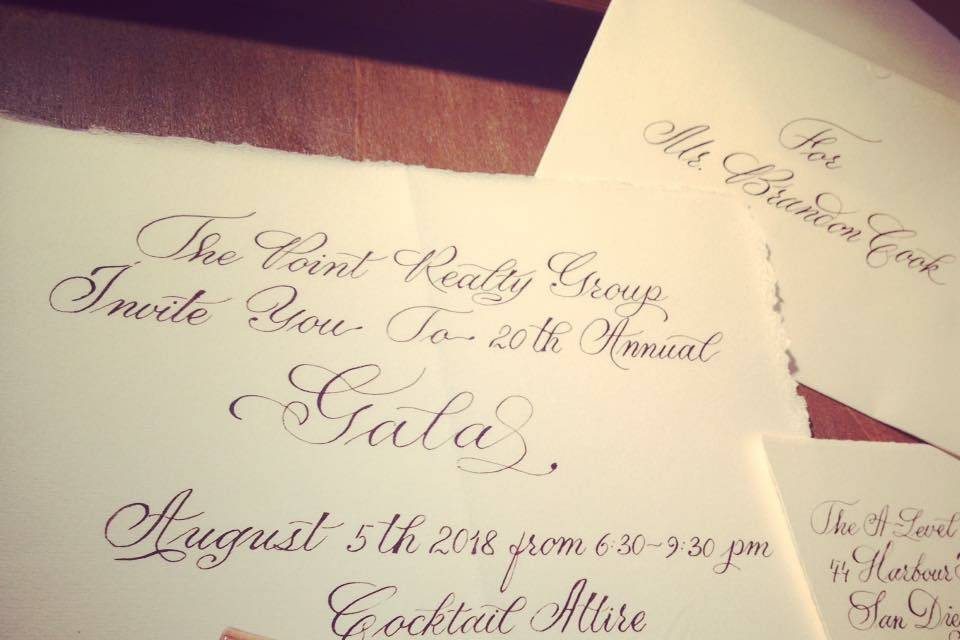 The Point Realty Group
Invite You To 20th Annual
Gala
August 5th 2018 from 6:30-9:30 pm
Cocktail Attire
For
Mr. Brandon Cook
The A-Level
44 Harbour
San Die